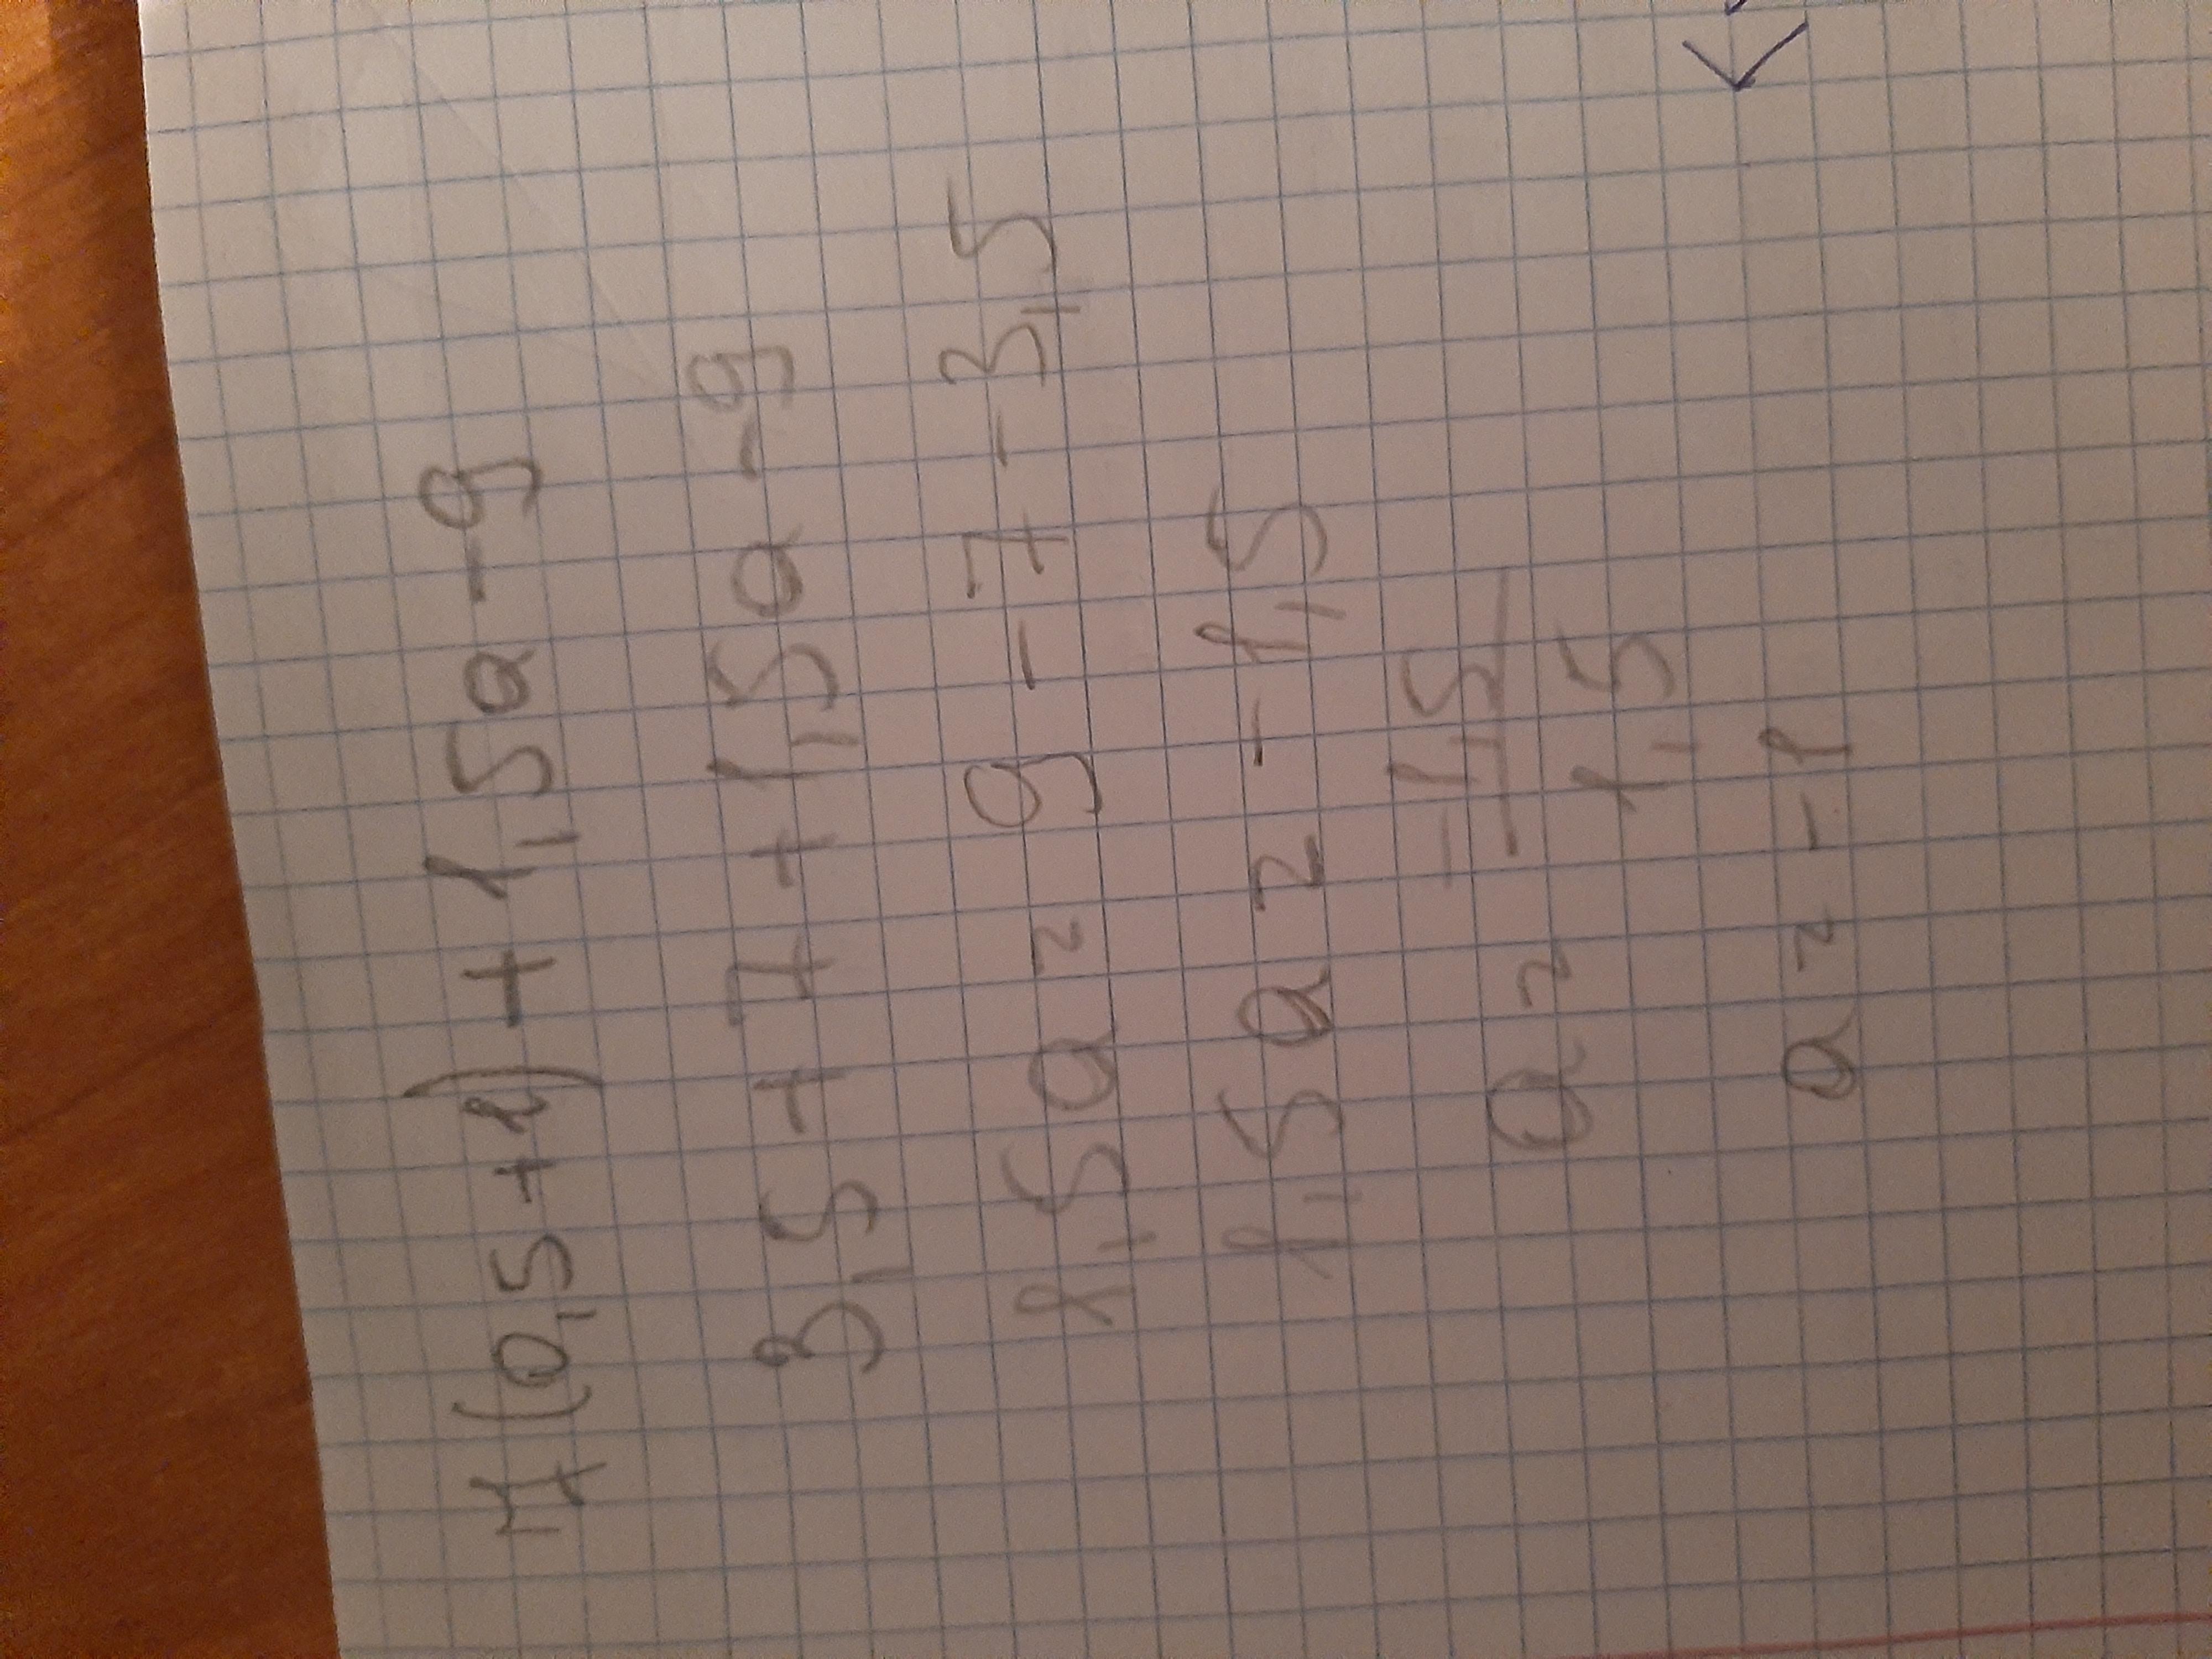 7(0,5+1)+1,5a-9
3,5+7+1,5a-9
1,5a=9-7-3,5
1,5a=-1,5
a=-\frac{-1,5}{1,5}
a=-1